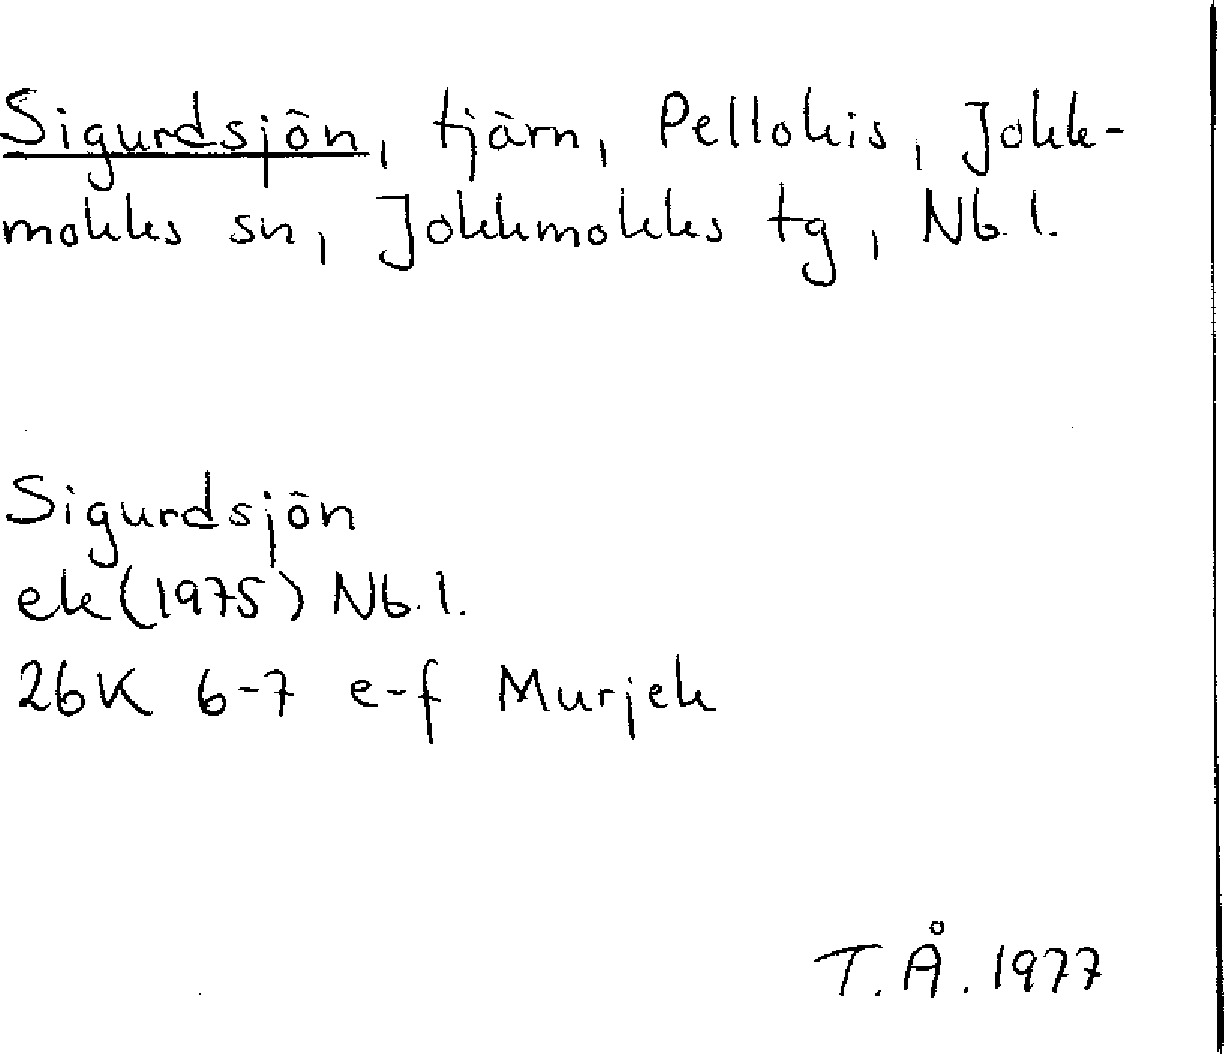 Sigurdsjön, tjärn, Pellokis, Jokk-
mokks sn, Jokkmokks tg, Nb.l.
Sigurdsjön
ek(1975) Nb.l.
26K 6-7 e-f Murjek
T.Å.1977